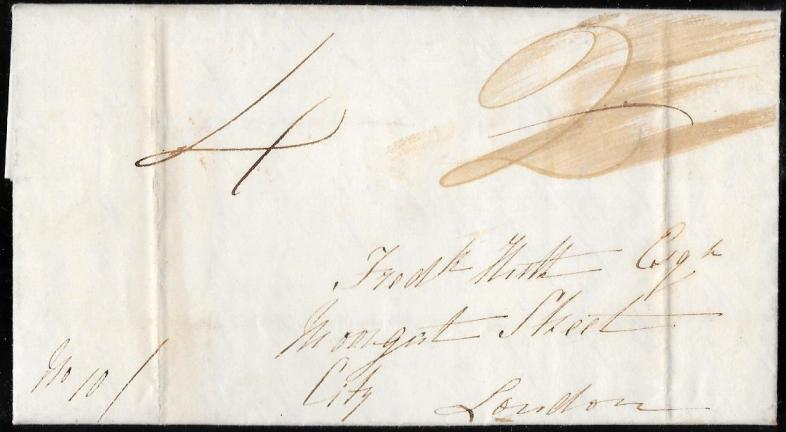 4 2
Fredk Huth Esqr
Moorgat Street
City
London
No 10 /